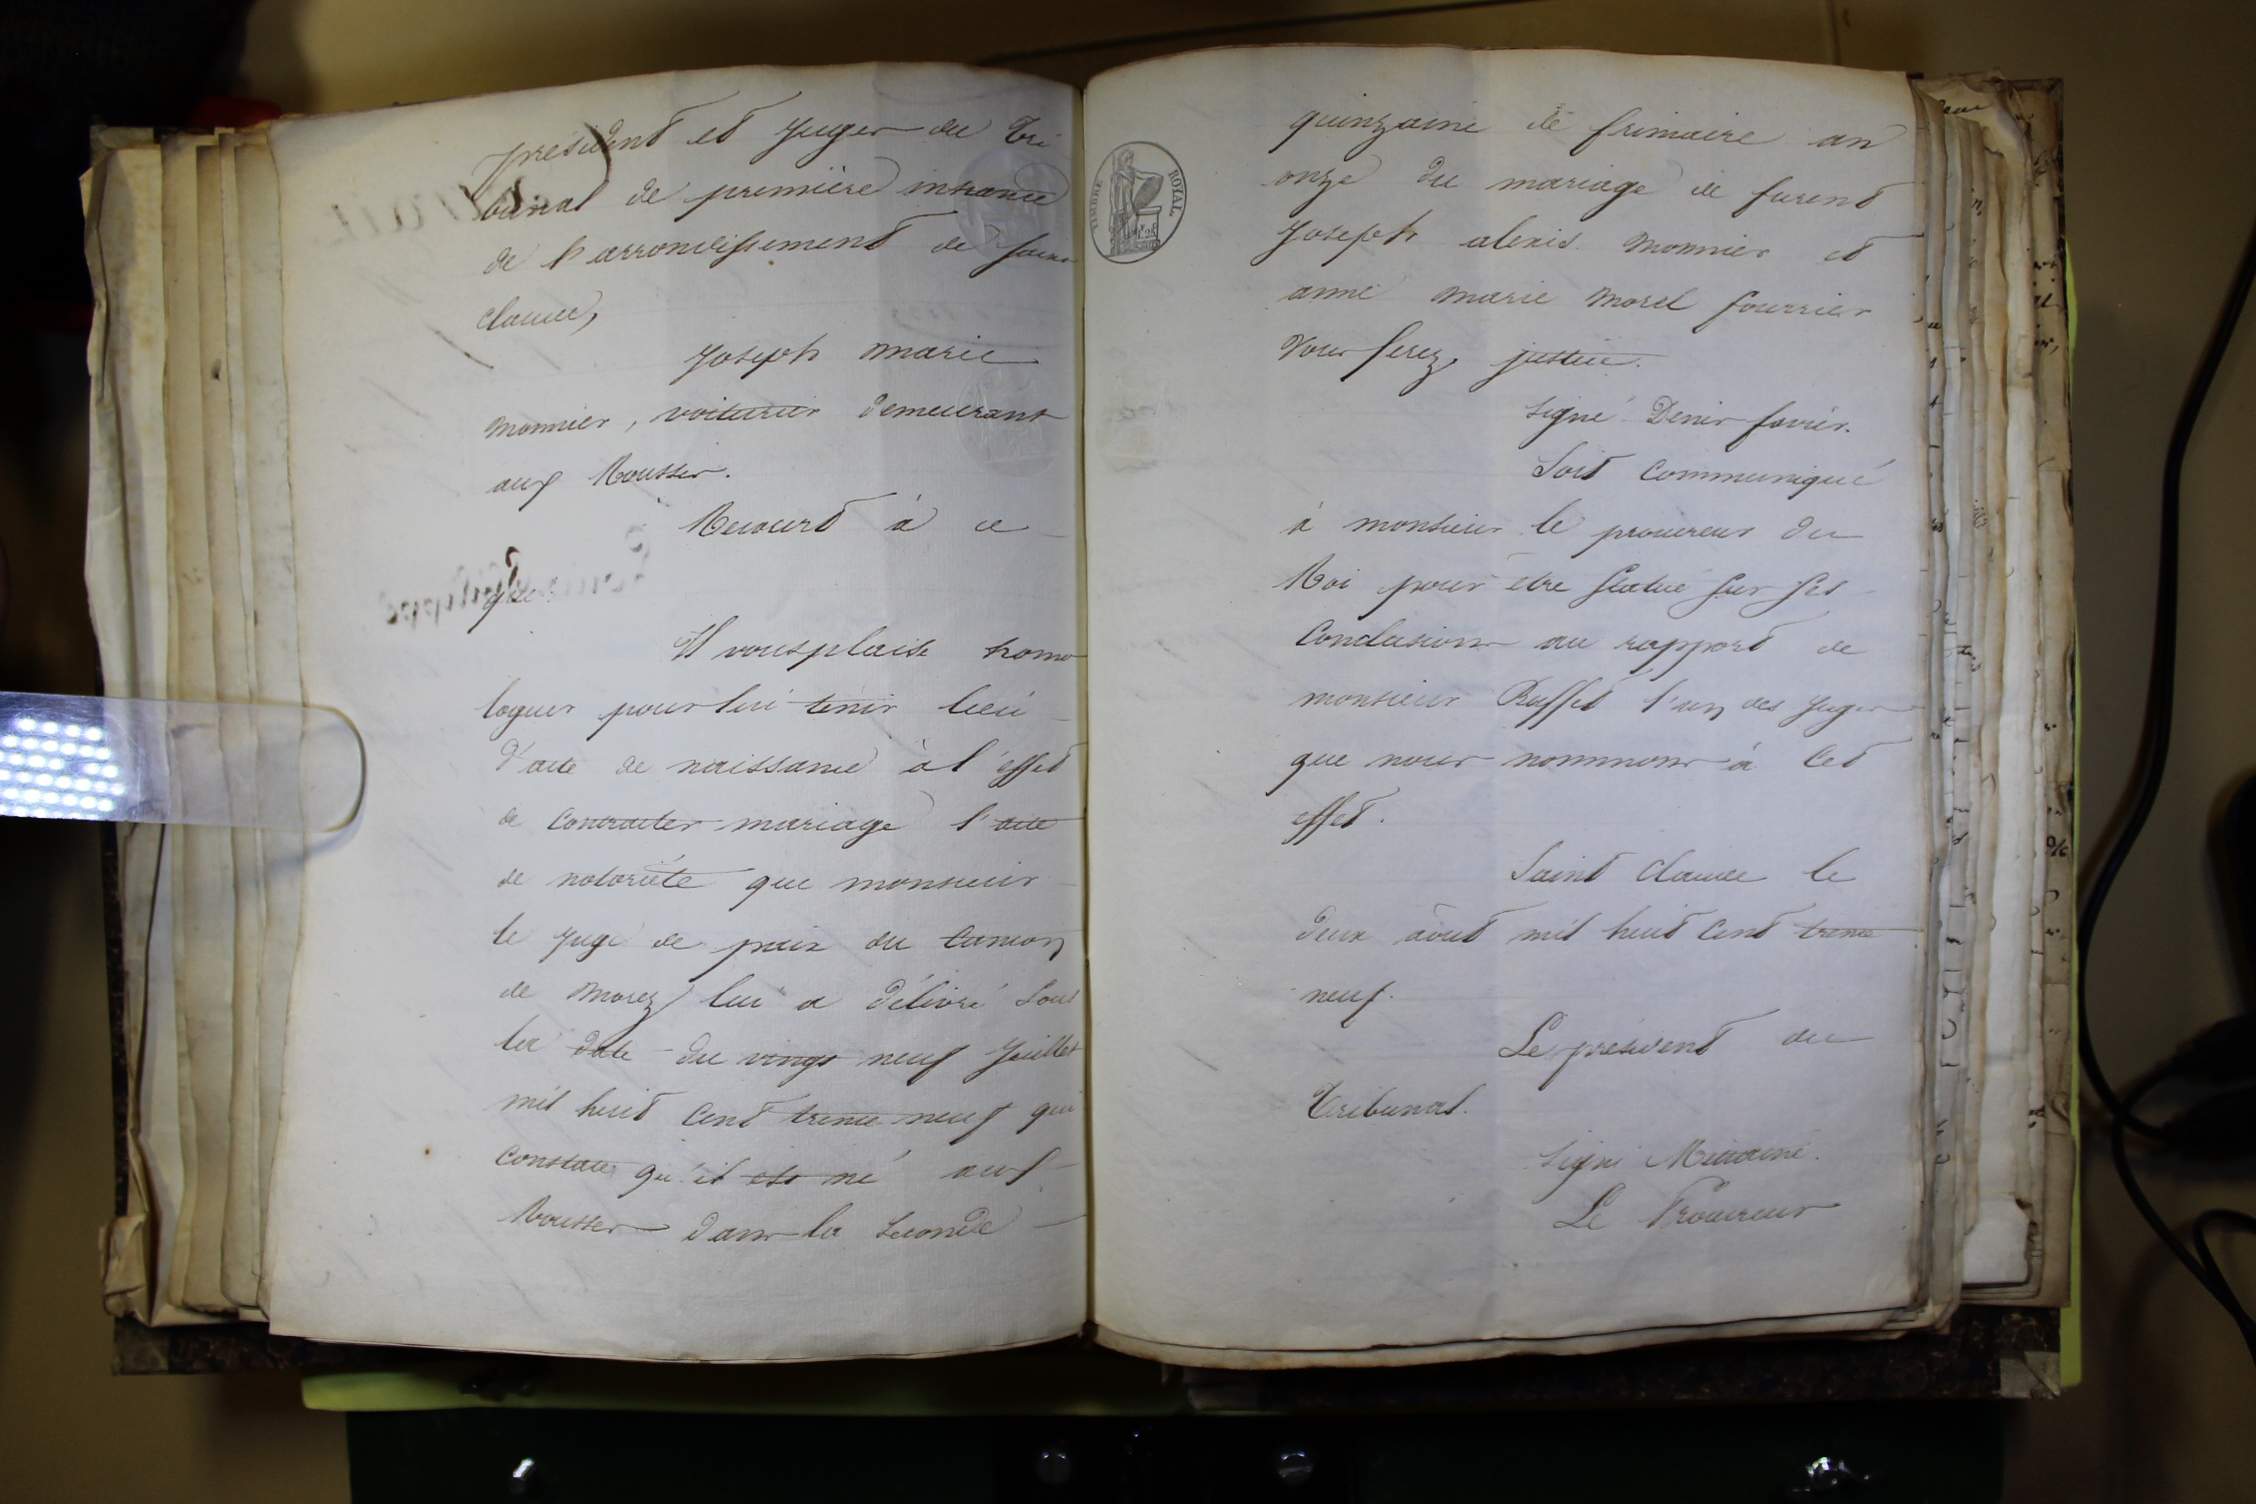 président et Juges du Tri
bunal de première instance
de l'arrondissement de Saint
claude,
Joseph Marie
Monnier, voiturier demeurant
aux Rousses.
Recourt à ce
que
Il vous plaise homo
loguer pour lui tenir lieu
d'acte de naissance à l'effet
de contracter mariage l'acte
de notoriété que monsieur
le Juge de paix du Canton
de Morez lui a délivré sous
la date du vingt neuf Juillet
mil huit Cent trente neuf qui
constate qu'il est né aux
Rousses dans la seconde
TIMBRE ROYAL
quinzaine de frimaire an
onze du mariage de furent
Joseph alexis Monnier et
anne Marie Morel fourrier
Vous ferez justice.
Signé Denis favier.
Soit Communiqué
à monsieur le procureur du
Roi pour être statué sur ses
Conclusions au rapport de
monsieur Buffet l'un des Juges
que nous nommons à Cet
effet.
Saint Claude le
deux août mil huit Cent trente
neuf.
Le président du
Tribunal.
Signé
Le Procureur